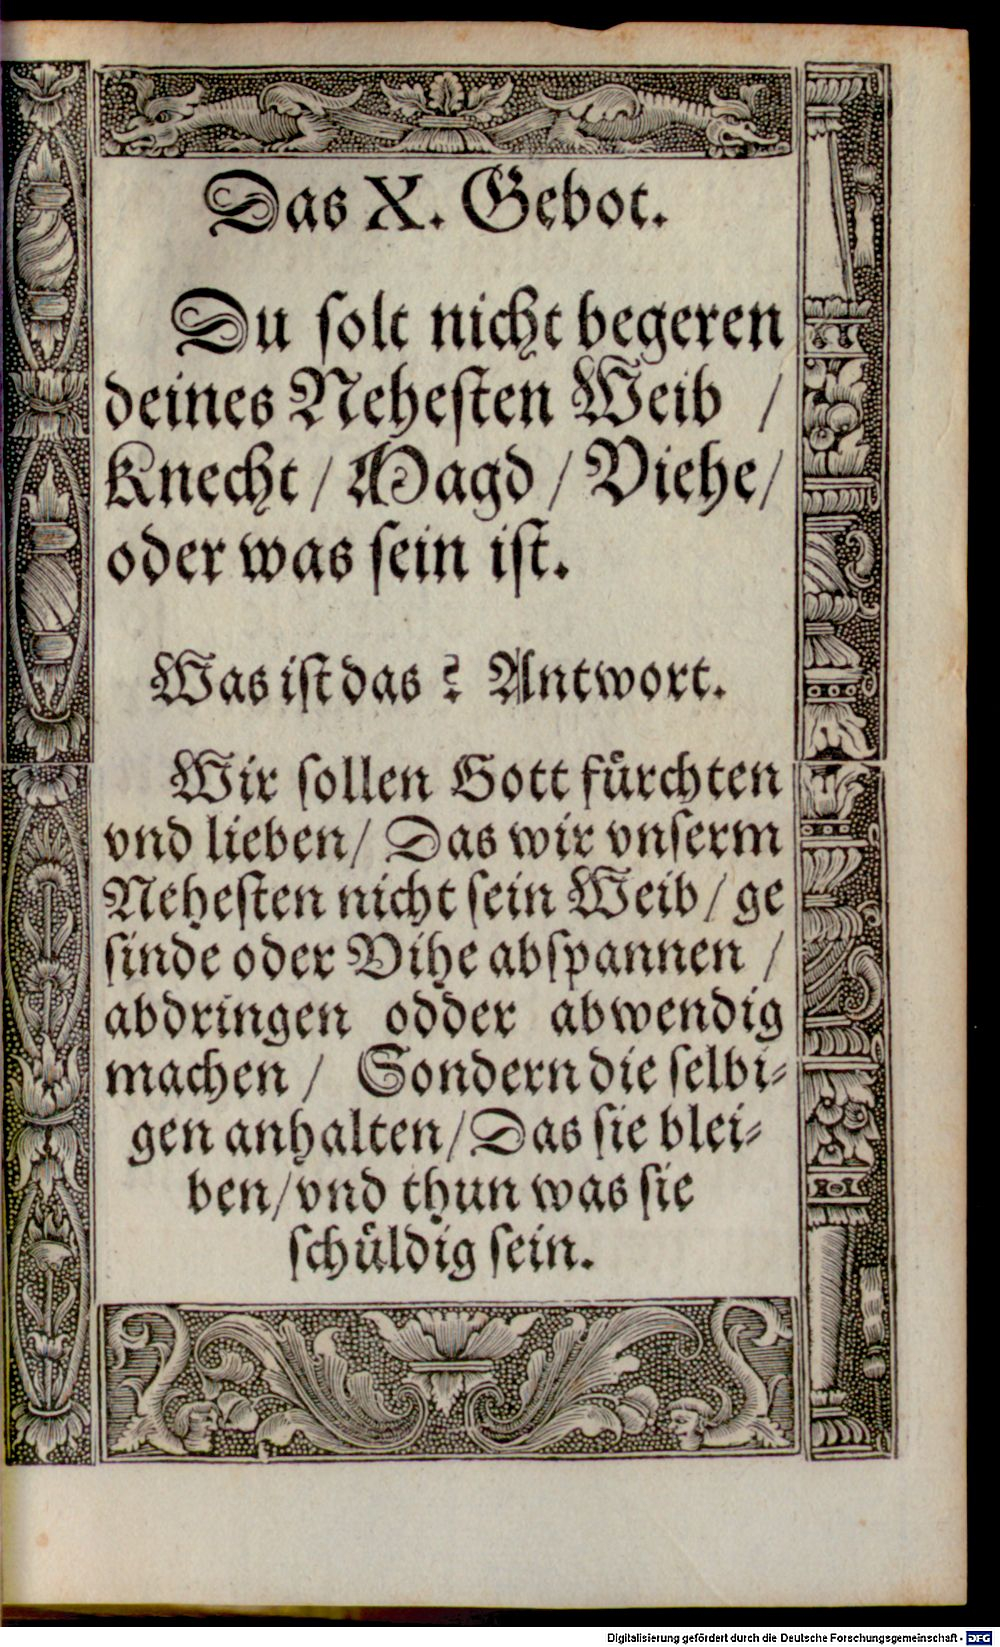 Das X. Gebot.
Du ſolt nicht begeren
deines Neheſten Weib /
Knecht / Magd / Viehe /
oder was ſein iſt.
Was iſt das? Antwort.
Wir ſollen Gott fürchten
vnd lieben / Das wir vnſerm
Neheſten nicht ſein Weib / ge
ſinde oder Vihe abſpannen /
abdringen odder abwendig
machen / Sondern die ſelbi⸗
gen anhalten / Das ſie blei⸗
ben / vnd thun was ſie
ſchüldig ſein.
Digitalisierung gefördert durch die Deutsche Forschungsgemeinschaft - DFG